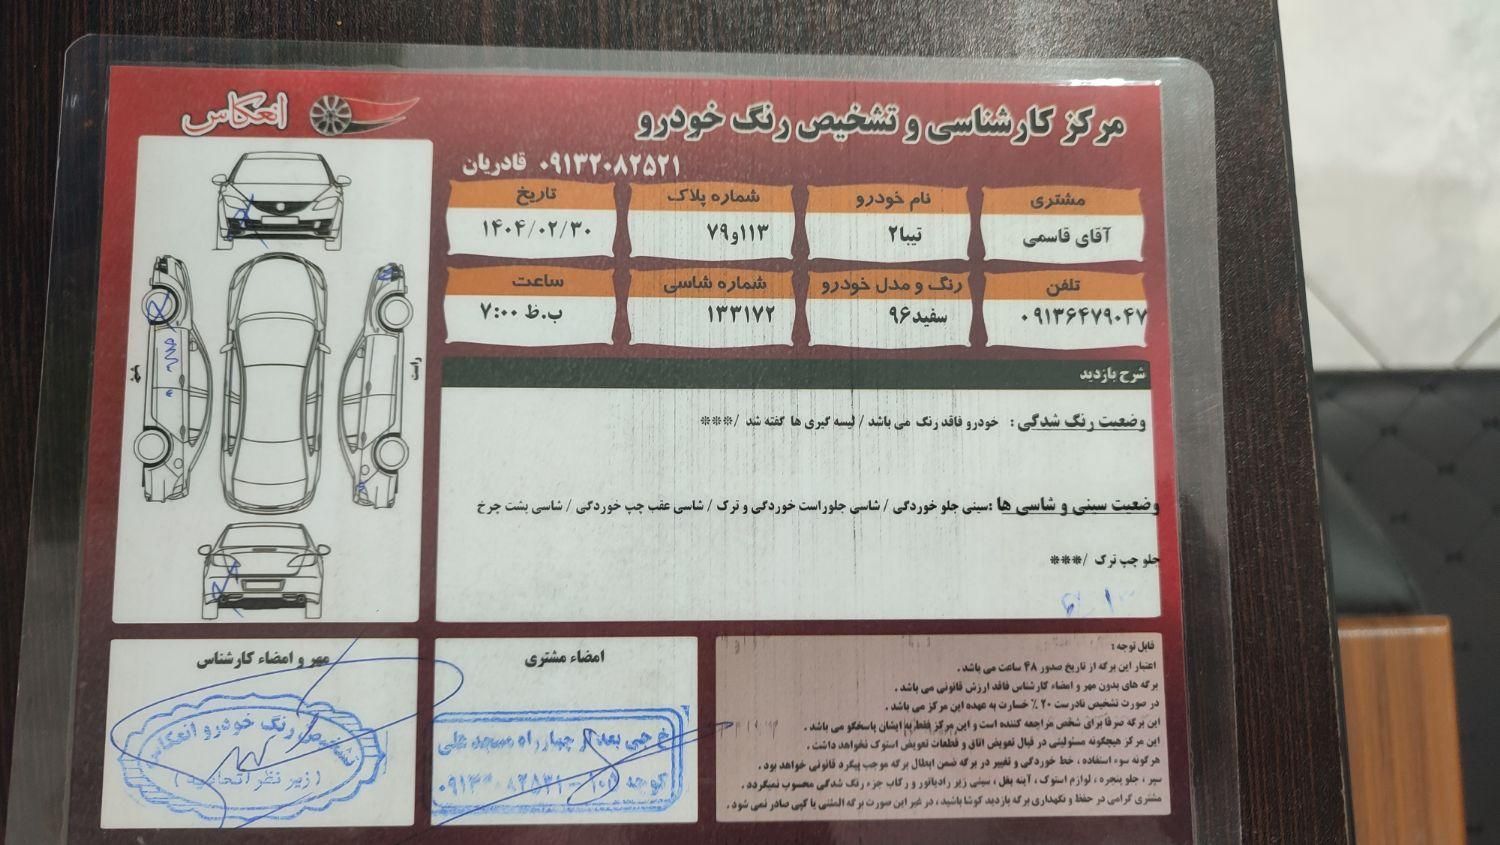 مرکز کارشناسی و تشخیص رنگ خودرو
انعکاس
۰۹۱۳۲۰۸۲۵۲۱ قادریان
مشتری
آقای قاسمی
نام خودرو
تیبا۲
شماره پلاک
۱۱۳و۷۹
تاریخ
۱۴۰۴/۰۲/۳۰
تلفن
۰۹۱۳۶۴۷۹۰۴۷
رنگ و مدل خودرو
سفید۹۶
شماره شاسی
۱۳۳۱۷۲
ساعت
۷:۰۰ ب.ظ
راست
شرح بازدید
وضعیت رنگ شدگی : خودرو فاقد رنگ می باشد / لیسه گیری ها گفته شد /***
وضعیت سینی و شاسی ها :سینی جلو خوردگی / شاسی جلوراست خوردگی و ترک / شاسی عقب چپ خوردگی / شاسی پشت چرخ
جلو چپ ترک /***
قابل توجه :
اعتبار این برگه از تاریخ صدور ۴۸ ساعت می باشد .
برگه های بدون مهر و امضاء کارشناس فاقد ارزش قانونی می باشد .
در صورت تشخیص نادرست ۲۰ ٪ خسارت به عهده این مرکز می باشد .
این برگه صرفا برای شخص مراجعه کننده است و این مرکز فقط به ایشان پاسخگو می باشد .
این مرکز هیچگونه مسئولیتی در قبال تعویض اتاق و قطعات تعویض استوک نخواهد داشت .
هرگونه سوء استفاده ، خط خوردگی و تغییر در برگه ضمن ابطال برگه موجب پیگرد قانونی خواهد بود .
سپر ، جلو پنجره ، لوازم استوک ، آینه بغل ، سینی زیر رادیاتور و رکاب جزء رنگ شدگی محسوب نمیگردد .
مشتری گرامی در حفظ و نگهداری برگه بازدید کوشا باشید ، در غیر این صورت برگه المثنی یا کپی صادر نمی شود .
امضاء مشتری
خ جی بعد از چهارراه مسجد علی
کوچه ۱۰۵ -
مهر و امضاء کارشناس
تشخیص رنگ خودرو انعکاس
( زیر نظر اتحادیه )